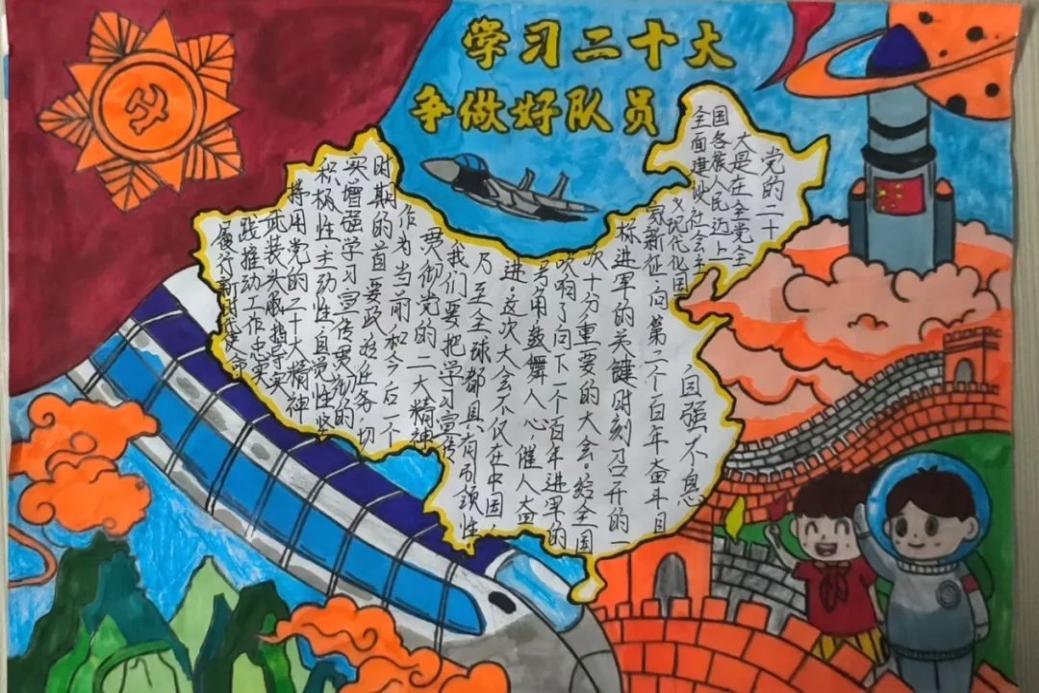 学习二十大
争做好队员
党的二十
大是在全党全
国各族人民迈上
全面建设社会主
义现代化国
家新征向第二个百年奋斗目
标进军的关键时刻召开的一
次十分重要的大会。给全国
吹响了向下一个百年进军的
号角鼓舞人心,催人奋
进。这次大会不仅在中国,
乃至全球都具有引领性
我们要把学习宣传
贯彻党的二大精神
作为当前和今后一个
时期的首要政治任务切
实增强学习宣传贯彻的
积极性主动性自觉性坚
持用党的二十大精神
武装头脑指导实
践推动工作忠实
履行新时代使命
自强不息